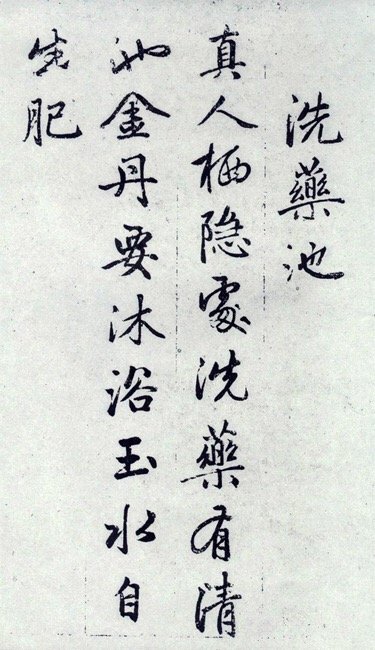 洗藥池
真人栖隐處洗藥有清
池金丹要沐浴玉水自
生肥